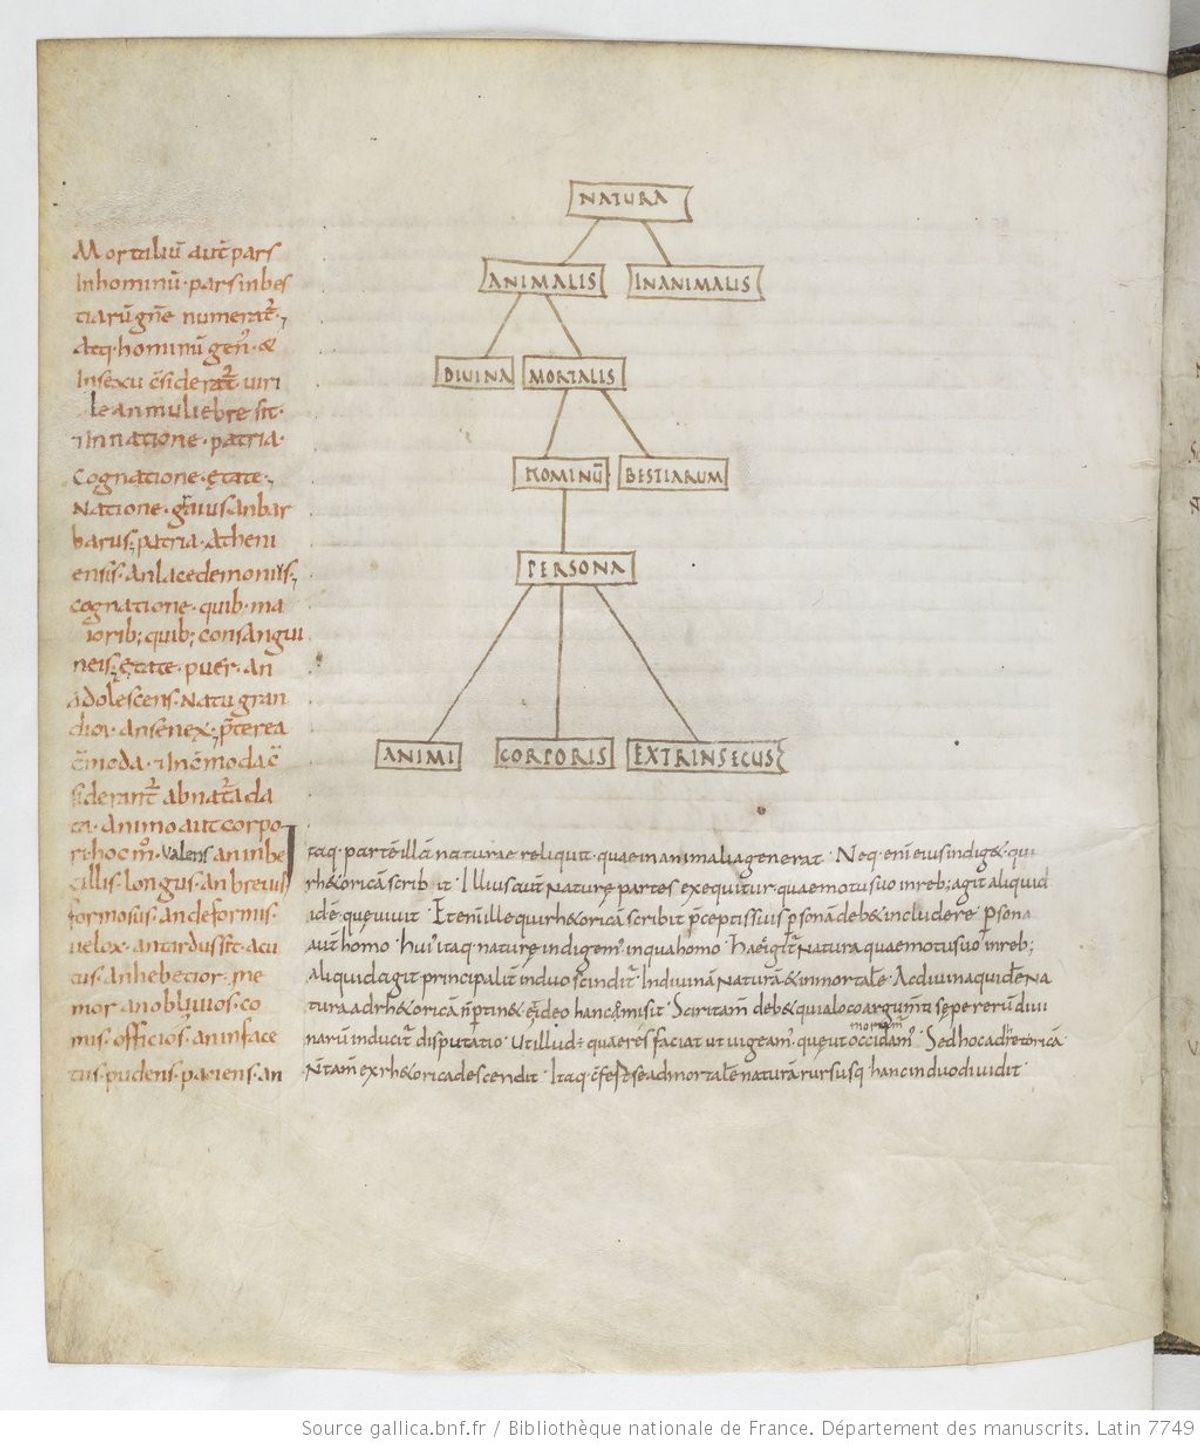 NATURA
ANIMALIS INANIMALIS
DIVINA MORTALIS
HOMINŪ BESTIARUM
PERSONA
ANIMI CORPORIS EXTRINSECUS
Mortaliū aut̄ pars
In hominū· pars in bes
tiarū gn̄e numerat᷒·,
atq· hominū gen᷒· &
In sexu c̄siderat᷒· viri
le an muliebre sit·
⁊ In natione· patria·
Cognatione· ętate·,
Natione· gͬaius an bar
barus; patria· Atheni
ensis· an lacedemonius;
cognatione· quib· ma
iorib; quib; consangui
neis; ętate· puer· an
adolescens· Natu gran
dior· an senex·; p̄terea
c̄moda· ⁊ Inc̄moda c̄
siderant᷒ ab nat᷒a da
ta· animo aut corpo
ri· hoc m̊· Valens an inbe
cillis· longus· an brevis
formosus· an deformis·
velox· an tardus sit· acu
tus· an hebetior· me
mor an obliviosᷤ· co
mis· officios᷒· an inface
tus· pudens· patiens· an
Itaq· partē illā naturae reliquit· quae inanimalia generat· Neq· enī eius indig&· qui
rh&oricā scrib it· Illius aut̄ Naturę partes exequitur· quae motu suo in reb; agit aliquid
idē· que vivit· Etenī ille qui rh&oricā scribit p̄ceptis suis p̱sonā deb& includere· p̱sona
aut̄ homo· hui᷒ itaq· naturę indigem᷒ in qua homo· Haec igit᷒ Natura quae motu suo in reb;
aliquid agit principalit̄ in duo scindit᷒· In divinā Naturā & inmortalē· Ac divina quidē Na
tura ad rh&oricā n̄ p̱tin& & ideo hanc om̄isit· Sciri tam̄ deb& quia loco argum̄ti sepe rerū divi
narū inducit᷒ disputatio· Ut illud÷ quae res faciat ut vigeam᷒· quęve ut occidam᷒· Sed hoc ad rhetoricā
Ñ tam̄ ex rh&orica descendit· Itaq· c̄fest se ad mortalē naturā rursusq· hanc in duo dividit·
Source gallica.bnf.fr / Bibliothèque nationale de France. Département des manuscrits. Latin 7749